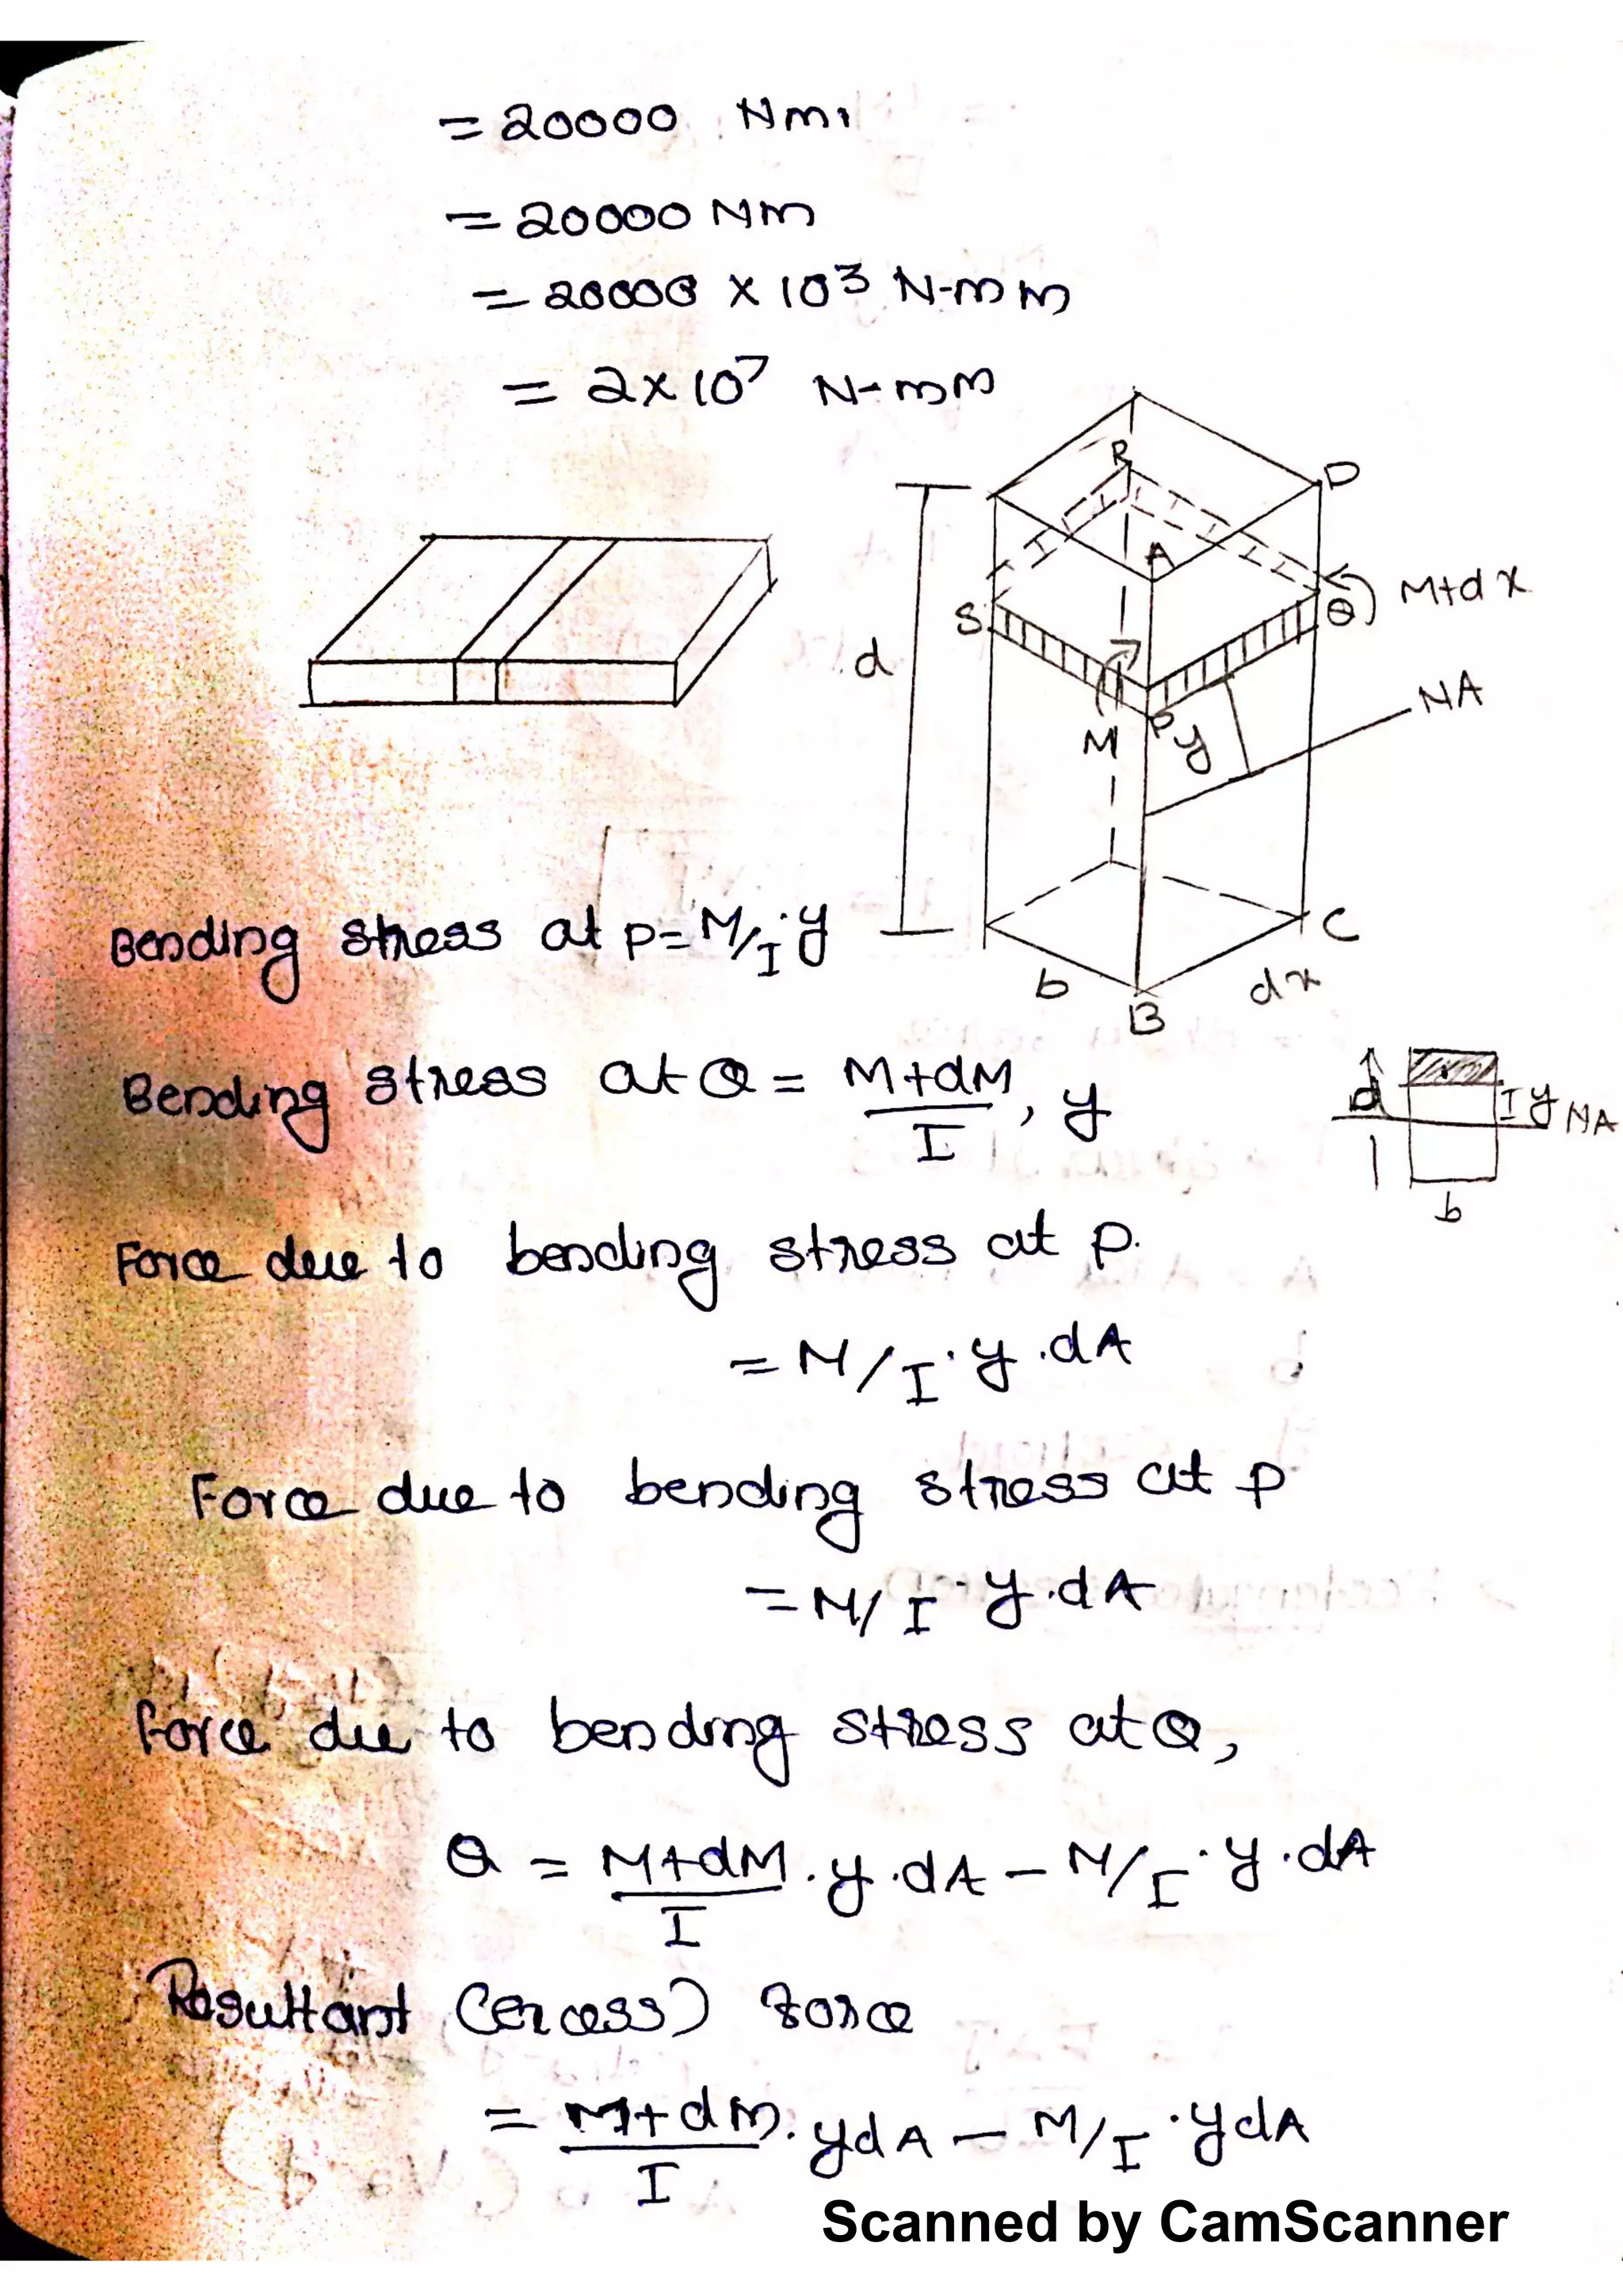 = 20000 Nm,
= 20000 Nm
= 20000 × 10³ N-mm
= 2×10⁷ N-mm
R
D
A
S
Q
M+dx
d
M
P
y
NA
C
b
dx
B
Bending stress at p = M/I · y
Bending stress at Q = (M+dM)/I, y
d
I y NA
b
Force due to bending stress at p.
= M/I · y · dA
Force due to bending stress at p
= M/I · y · dA
Force due to bending stress at Q,
Q = (M+dM)/I · y · dA − M/I · y · dA
Resultant (excess) force
= (M+dM)/I · ydA − M/I · ydA
Scanned by CamScanner